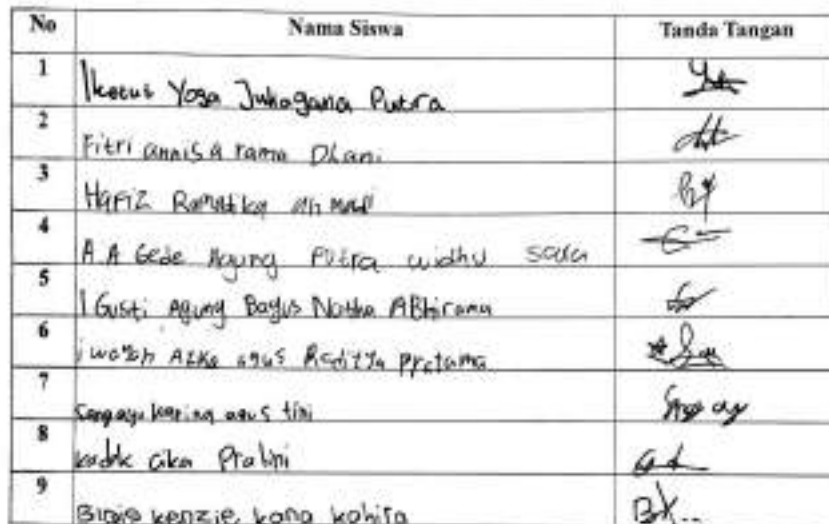 No Nama Siswa Tanda Tangan
1 I ketut Yoga Juhagana Putra
2 Fitri annisa rama Dhani
3 Hafiz Ramatika ahmad
4 A A Gede Agung Putra widhu
5 I Gusti Agung Bagus Natha ABhirama
6 i wayan Azka agus Raditya pratama
7 Sangayu karina agus tini
8 kadek cika Pratini
9 kenzie kana